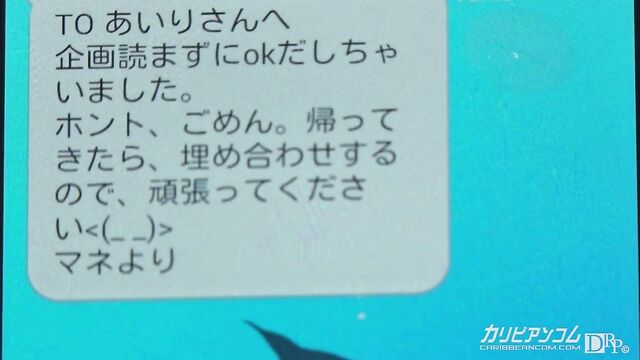 TO あいりさんへ
企画読まずにokだしちゃ
いました。
ホント、ごめん。帰って
きたら、埋め合わせする
ので、頑張ってくださ
い<(_ _)>
マネより
カリビアンコム
CARIBBEANCOM.COM
DRP©